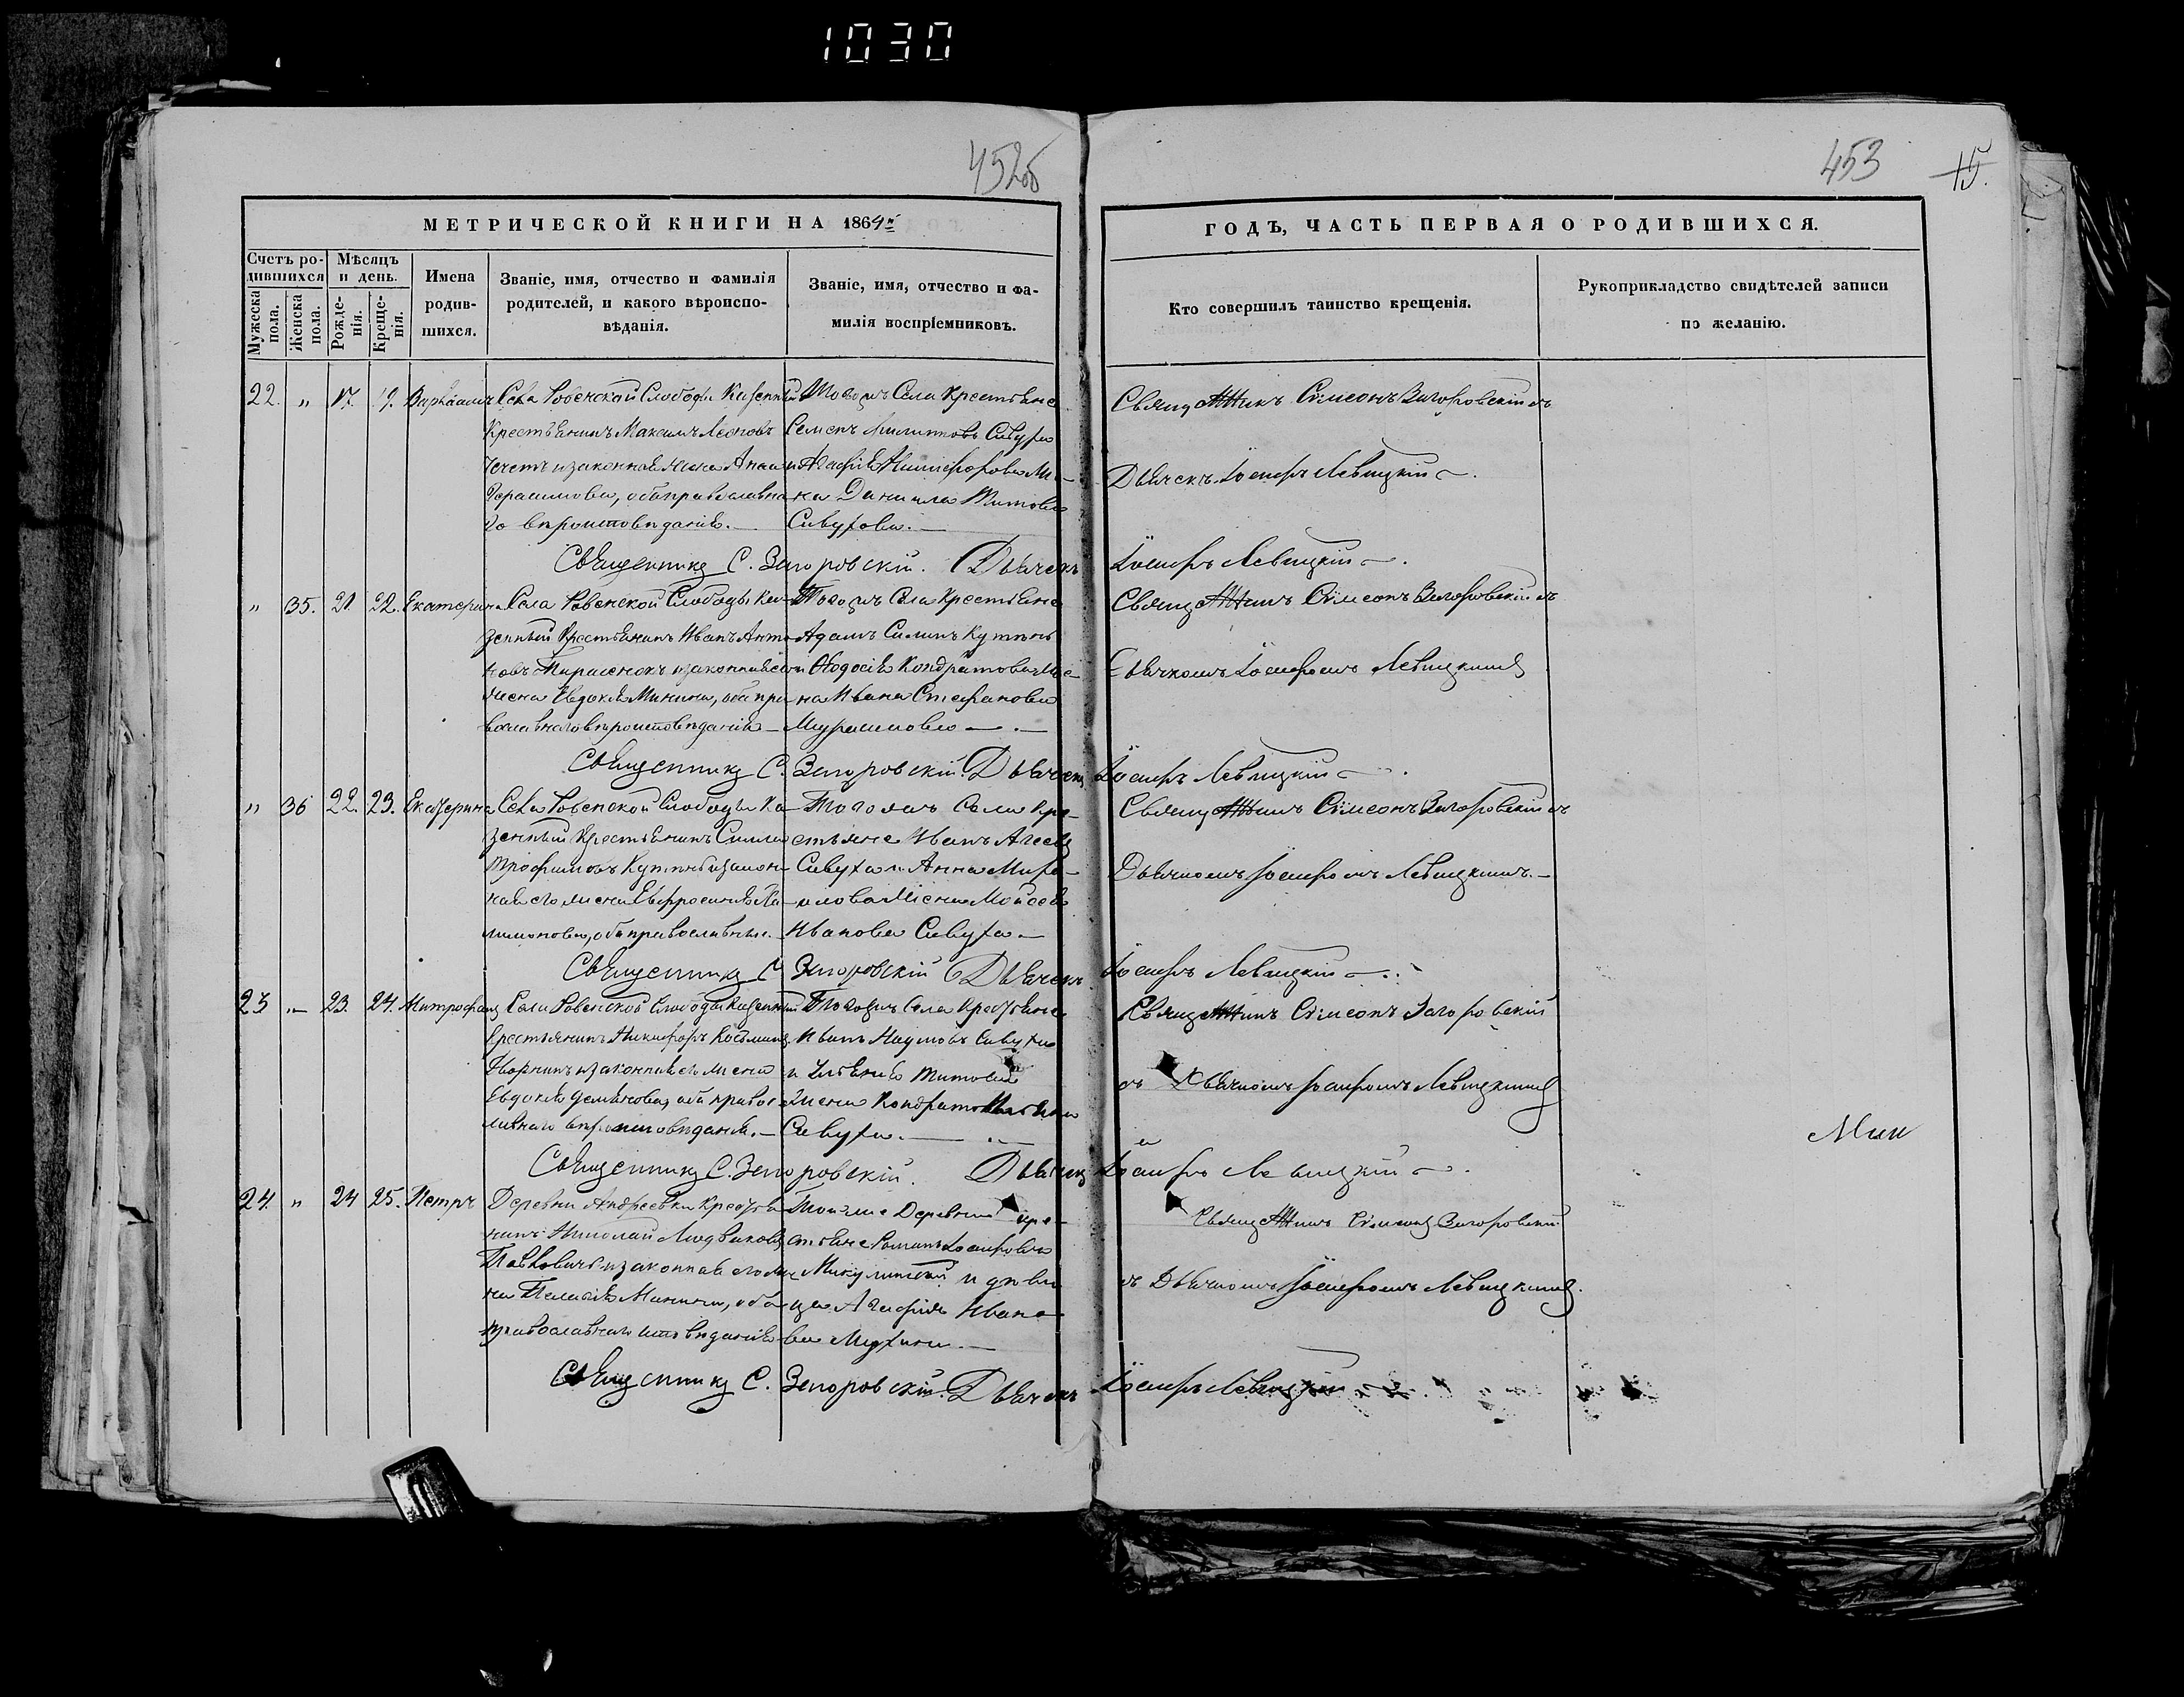 1030
452об
453
15.
МЕТРИЧЕСКОЙ КНИГИ НА 1864й
Счетъ родившихся
Мѣсяцъ и день.
Мужеска пола.
Женска пола.
Рожденія.
Крещенія.
Имена родившихся.
Званіе, имя, отчество и фамилія родителей, и какого вѣроисповѣданія.
Званіе, имя, отчество и фамилія воспріемниковъ.
ГОДЪ, ЧАСТЬ ПЕРВАЯ О РОДИВШИХСЯ.
Кто совершилъ таинство крещенія.
Рукоприкладство свидѣтелей записи по желанію.
22. " 17. 19. Варлаамъ
Села Ровенской Слободы Казенный
Крестьянинъ Максимъ
и законная жена Анна
Герасимова, оба православна
го вѣроисповѣданія.
Тогожъ Села Крестьяне
Семенъ Филиповъ Сивуха
и Агафія Никифорова же-
на Даніила Титова
Сивухова.
Священникъ Сѵмеонъ Загоровскій съ
Дьячекъ Іосифъ Левицкій
Священникъ С. Загоровскій. Дьячекъ Іосифъ Левицкій
" 35. 21 22. Екатерина
Села Ровенской Слободы Ка-
зенный Крестьянинъ Иванъ Анто-
новъ и законная его
жена Евдокія Минина, оба пра-
вославнаго вѣроисповѣданія
Тогожъ Села Крестьяне
Адамъ Силинъ
и Ѳеодосія Кондратова же-
на Ивана Стефанова
Мурашкова
Священникъ Сѵмеонъ Загоровскій съ
Дьячкомъ Іосифомъ Левицкимъ
Священникъ С. Загоровскій. Дьячекъ Іосифъ Левицкій
" 36 22. 23. Екатерина
Села Ровенской Слободы Ка-
зенный Крестьянинъ Симеонъ
Трофимовъ и закон-
ная его жена Евфросинія Фи-
лимонова, оба православные.
Тогожъ Села Кре-
стьяне Иванъ Агеевъ
Сивуха и Анна Миха-
илова жена Моисея
Иванова Сивуха
Священникъ Сѵмеонъ Загоровскій съ
Дьячкомъ Іосифомъ Левицкимъ.
Священникъ С Загоровскій Дьячекъ Іосифъ Левицкій
23 " 23. 24. Митрофанъ
Села Ровенской Слободы Казенный
Крестьянинъ Никифоръ Козьминъ
и законная его жена
Евдокія Демьянова, оба правос-
лавнаго вѣроисповѣданія.
Тогожъ Села Крестьяне
Иванъ Наумовъ Сивуха
и Ульянія Титова
жена Кондрата
Сивуха.
Священникъ Сѵмеонъ Загоровскій
съ Дьячкомъ Іосифомъ Левицкимъ
Священникъ С. Загоровскій. Дьячекъ Іосифъ Левицкій
24. " 24 25. Петръ
Деревни Андреевки Крестья-
нинъ Николай Людвиковъ
Павловичъ и законная его же-
на Пелагія Минина, оба
православнаго исповѣданія
Тойже Деревни Кре-
стьяне Романъ Іосифовъ
Микулинскій и дѣви-
ца Агафія Ивано-
ва Мухина.
Священникъ Сѵмеонъ Загоровскій
съ Дьячкомъ Іосифомъ Левицкимъ.
Священникъ С. Загоровскій. Дьячекъ Іосифъ Левицкій